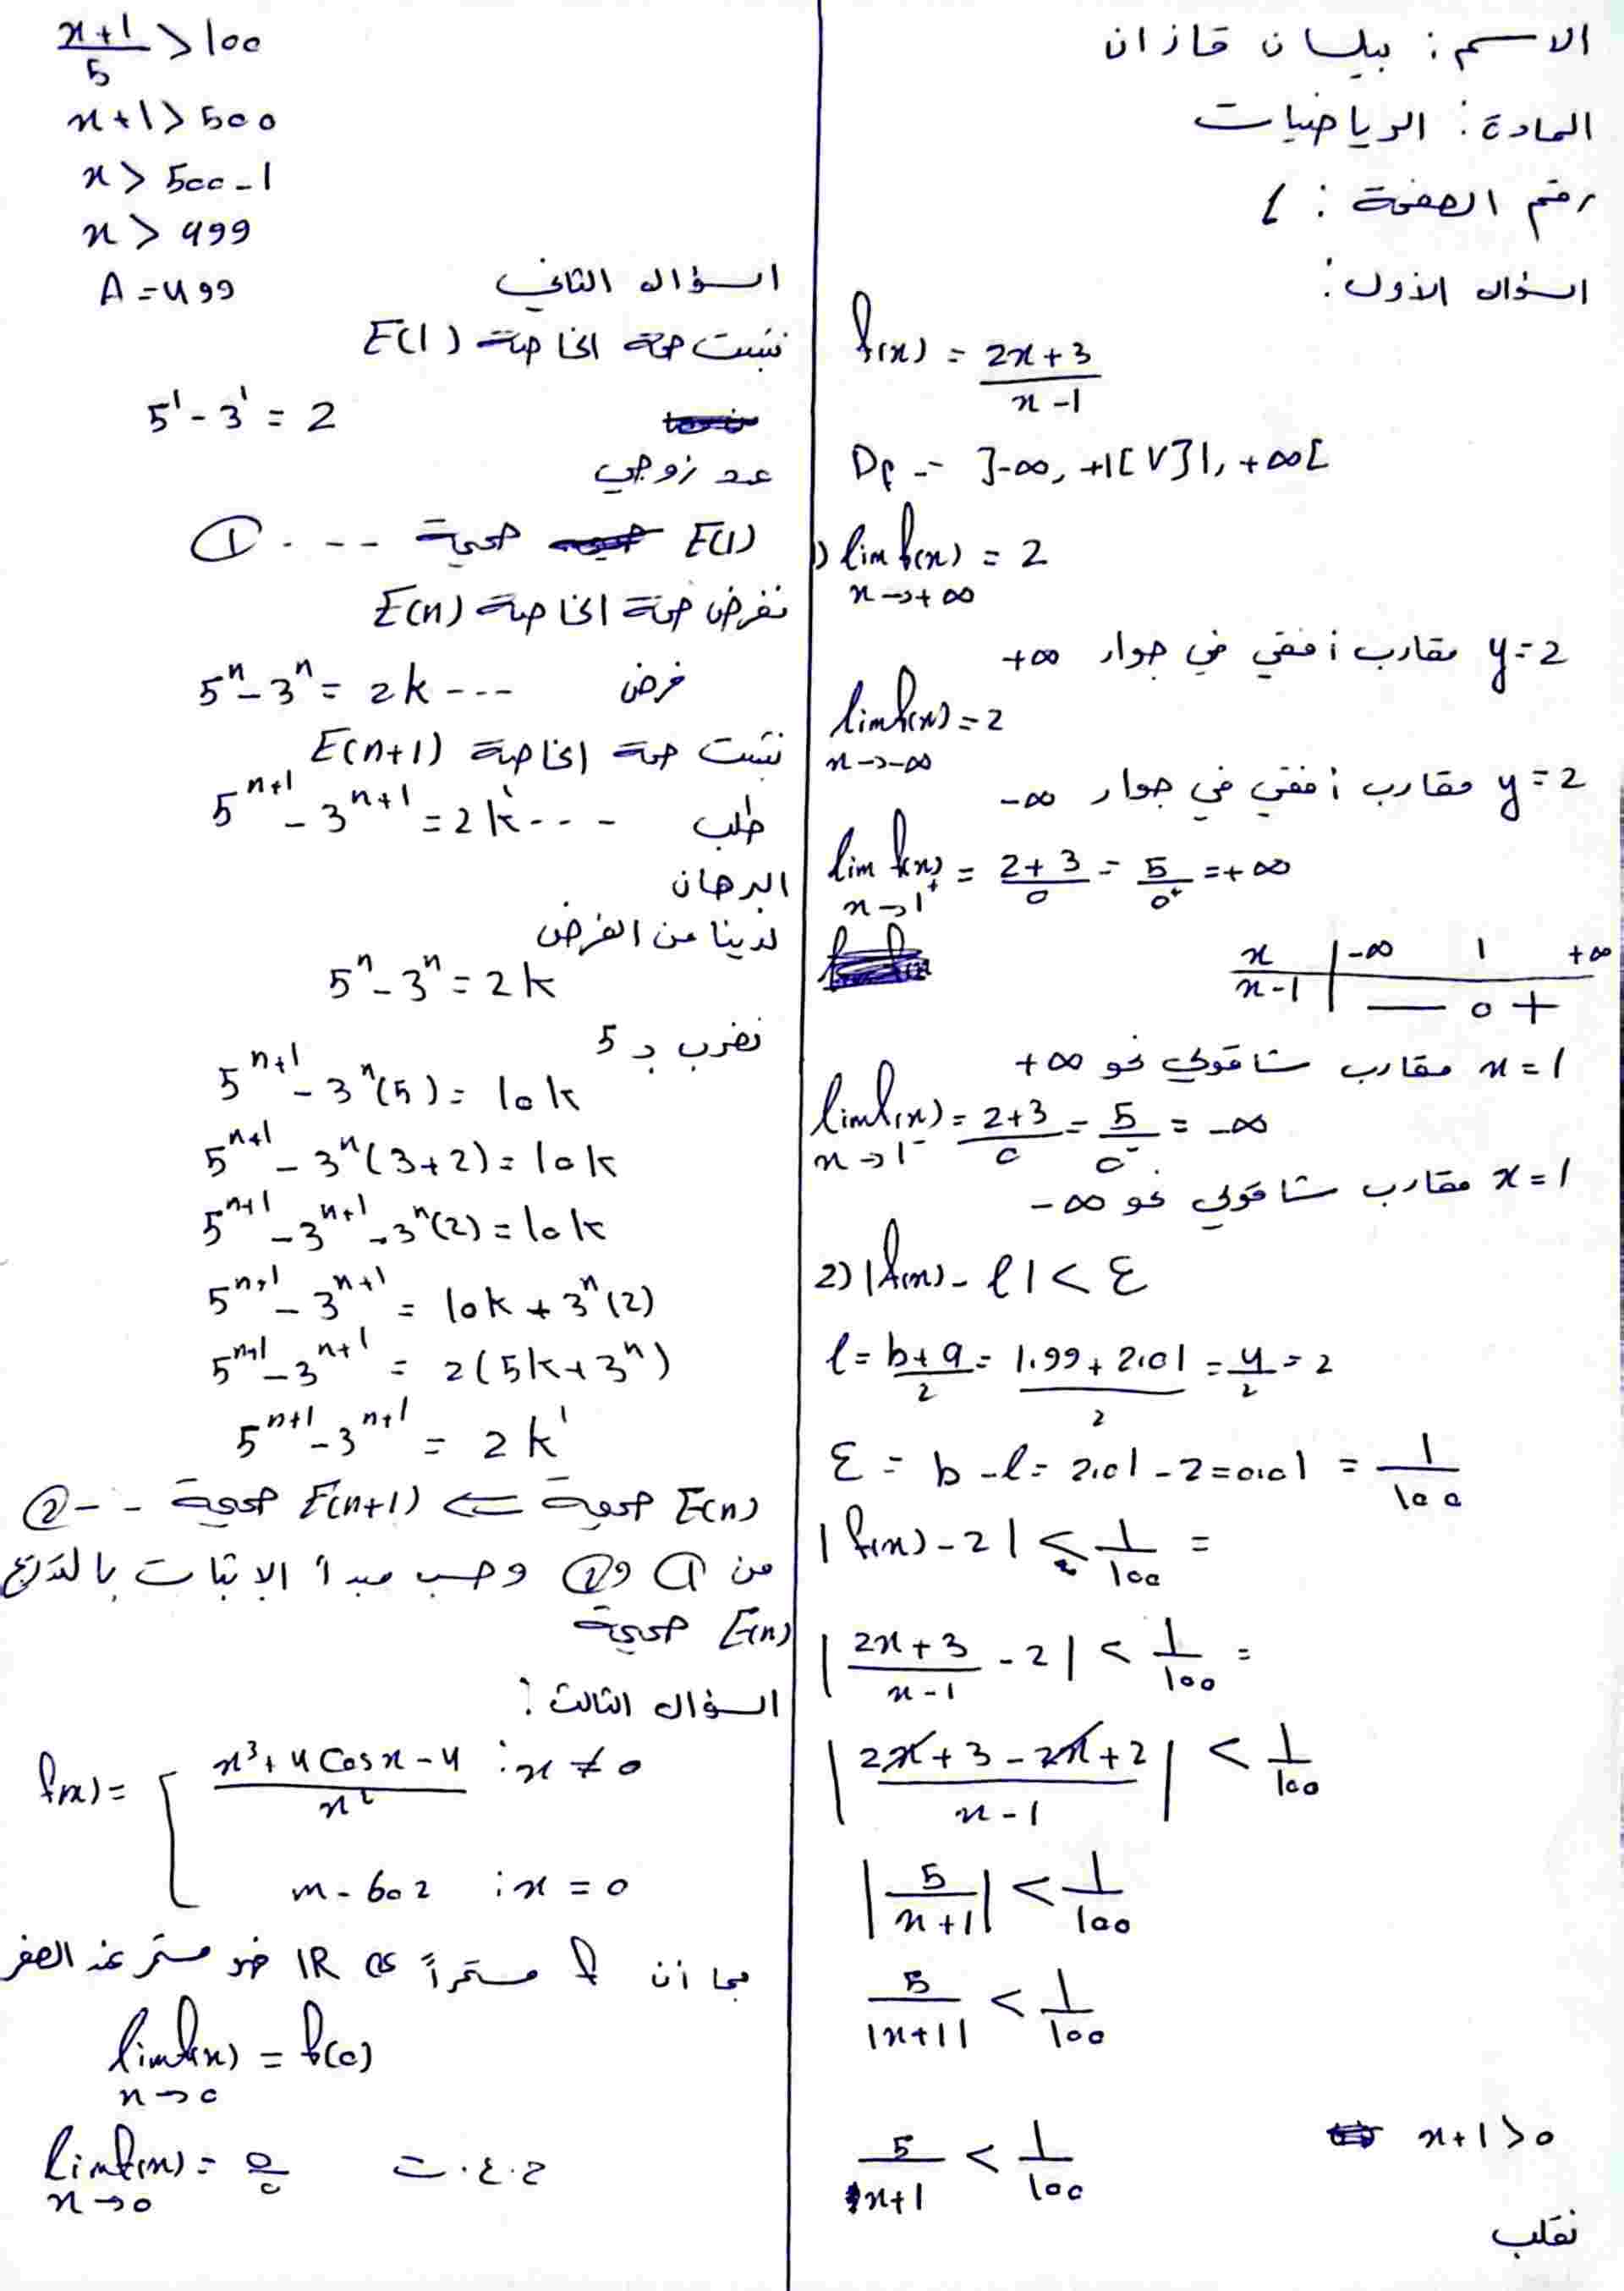 الاسم: بيلسان قازان
المادة: الرياضيات
رقم الصفحة: 1
السؤال الأول:
f(x) = (2x+3)/(x-1)
Df = ]-∞, +1[ V ]1, +∞[
1) lim f(x) = 2
x→+∞
y=2 مقارب أفقي في جوار +∞
lim f(x) = 2
x→-∞
y=2 مقارب أفقي في جوار -∞
lim f(x) = (2+3)/0 = 5/0⁺ = +∞
x→1⁺
x | -∞ 1 +∞
x-1 | — 0 +
x=1 مقارب شاقولي نحو +∞
lim f(x) = (2+3)/0 = 5/0⁻ = -∞
x→1⁻
x=1 مقارب شاقولي نحو -∞
2) |f(x) - l| < ε
l = (b+a)/2 = (1.99+2.01)/2 = 4/2 = 2
ε = b - l = 2.01 - 2 = 0.01 = 1/100
|f(x) - 2| < 1/100 =
|(2x+3)/(x-1) - 2| < 1/100 =
|(2x+3-2x+2)/(x-1)| < 1/100
|5/(x+1)| < 1/100
5/|x+1| < 1/100
5/(x+1) < 1/100 x+1>0
نقلب
(x+1)/5 > 100
x+1 > 500
x > 500-1
x > 499
A = 499
السؤال الثاني
نثبت صحة الخاصة E(1)
5¹ - 3¹ = 2
عدد زوجي
E(1) صحيحة --- ①
نفرض صحة الخاصة E(n)
5ⁿ - 3ⁿ = 2k --- فرض
نثبت صحة الخاصة E(n+1)
5ⁿ⁺¹ - 3ⁿ⁺¹ = 2k' --- طلب
البرهان
لدينا من الفرض
5ⁿ - 3ⁿ = 2k
نضرب بـ 5
5ⁿ⁺¹ - 3ⁿ(5) = 10k
5ⁿ⁺¹ - 3ⁿ(3+2) = 10k
5ⁿ⁺¹ - 3ⁿ⁺¹ - 3ⁿ(2) = 10k
5ⁿ⁺¹ - 3ⁿ⁺¹ = 10k + 3ⁿ(2)
5ⁿ⁺¹ - 3ⁿ⁺¹ = 2(5k+3ⁿ)
5ⁿ⁺¹ - 3ⁿ⁺¹ = 2k'
E(n) صحيحة ⇐ E(n+1) صحيحة -- ②
من ① و② وحسب مبدأ الاثبات بالتدريج
E(n) صحيحة
السؤال الثالث:
f(x) = { (x³+4cosx-4)/x² : x≠0
m-602 : x=0
بما أن f مستمراً على IR فهو مستمر عند الصفر
lim f(x) = f(0)
x→0
lim f(x) = 0/0 ح.ع.ت
x→0